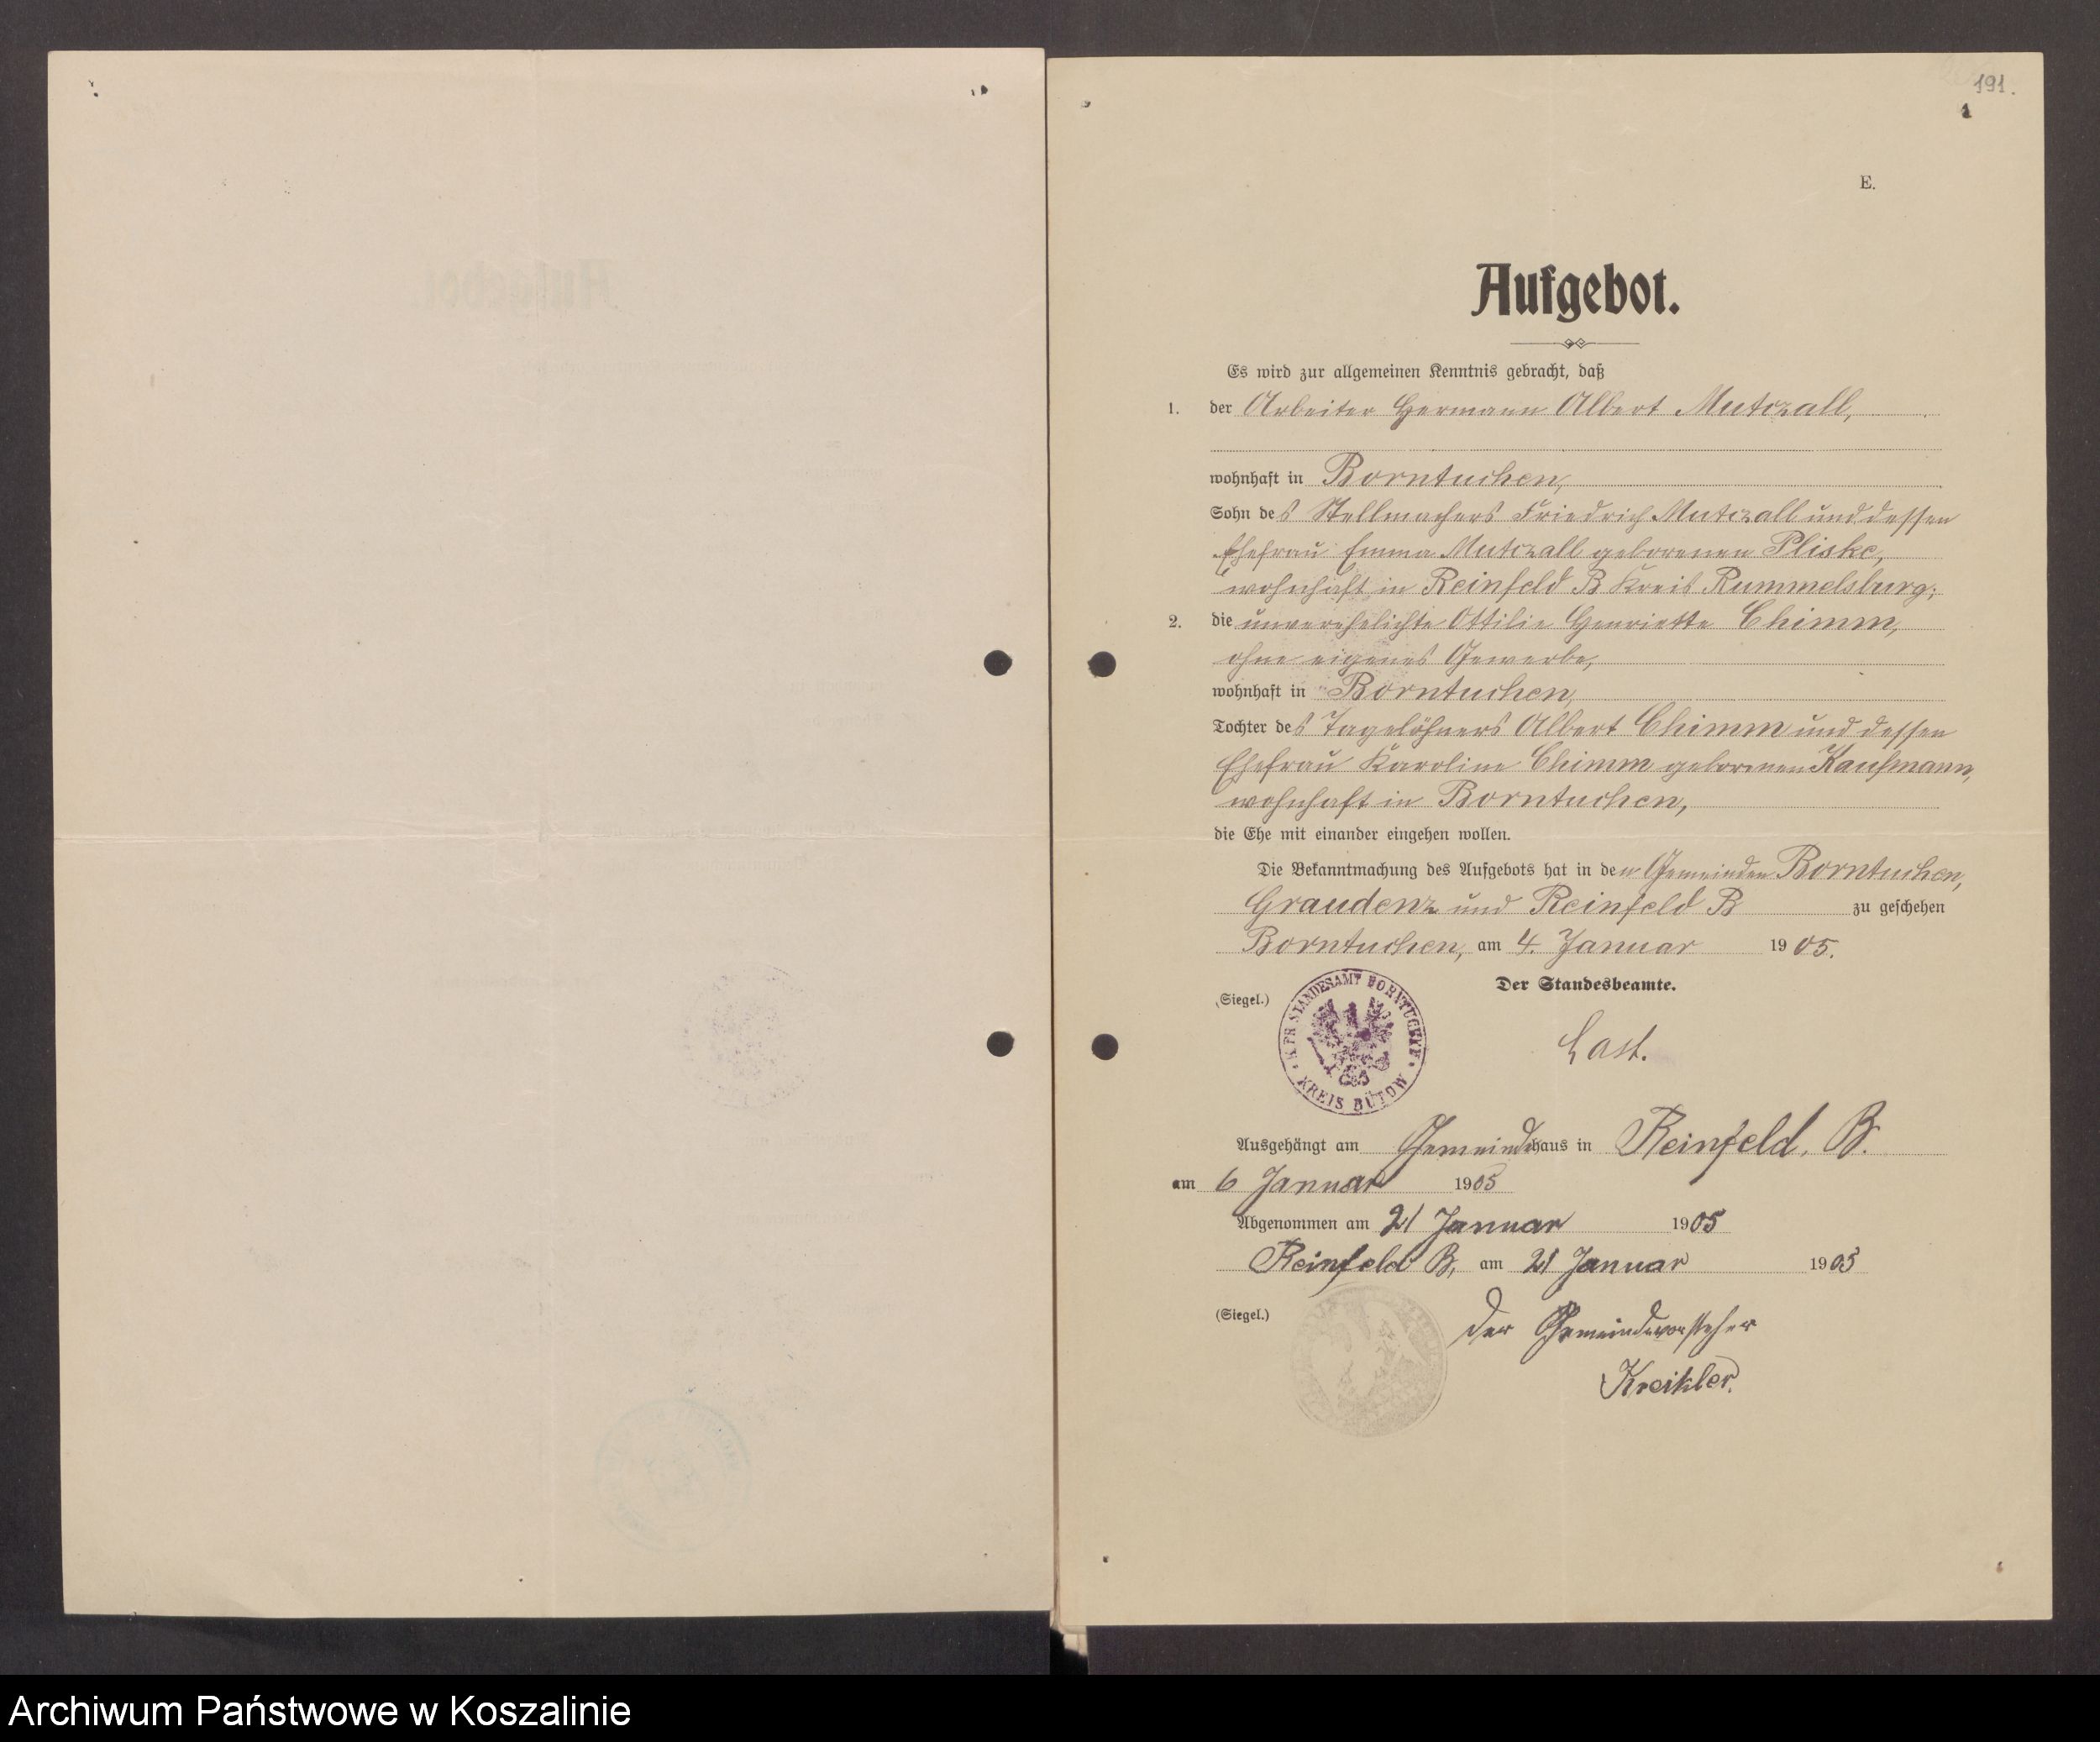 191.
E.
Aufgebot.
Es wird zur allgemeinen Kenntnis gebracht, daß
1. der Arbeiter Hermann Albert Mutczall,
wohnhaft in Borntuchen,
Sohn des Stellmachers Friedrich Mutczall und dessen
Ehefrau Emma Mutczall geborenen Pliske,
wohnhaft in Reinfeld B Kreis Rummelsburg;
2. die unverehelichte Ottilie Henriette Chimm,
ohne eigenes Gewerbe,
wohnhaft in Borntuchen,
Tochter des Tagelöhners Albert Chimm und dessen
Ehefrau Karoline Chimm geborenen Kaufmann,
wohnhaft in Borntuchen,
die Ehe mit einander eingehen wollen.
Die Bekanntmachung des Aufgebots hat in den Gemeinden Borntuchen,
Graudenz und Reinfeld B zu geschehen
Borntuchen, am 4. Januar 1905.
Der Standesbeamte.
(Siegel.)
K PR STANDESAMT BORNTUCHEN
KREIS BÜTOW
Last.
Ausgehängt am Gemeindehaus in Reinfeld. B.
am 6 Januar 1905
Abgenommen am 21 Januar 1905
Reinfeld B, am 21 Januar 1905
(Siegel.)
Der Gemeindevorsteher
Kreikler.
Archiwum Państwowe w Koszalinie